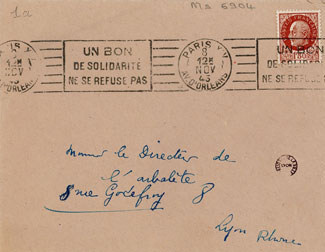 1a
Ms 6904
UN BON
DE SOLIDARITÉ
NE SE REFUSE PAS
PARIS XIV
8
12H
NOV
43
AV. D'ORLEANS
UN BON
DE SOLIDARITÉ
NE SE REFUSE PAS
Monsieur le Directeur de
l'arbalète
8 rue Godefroy 8
Lyon Rhône